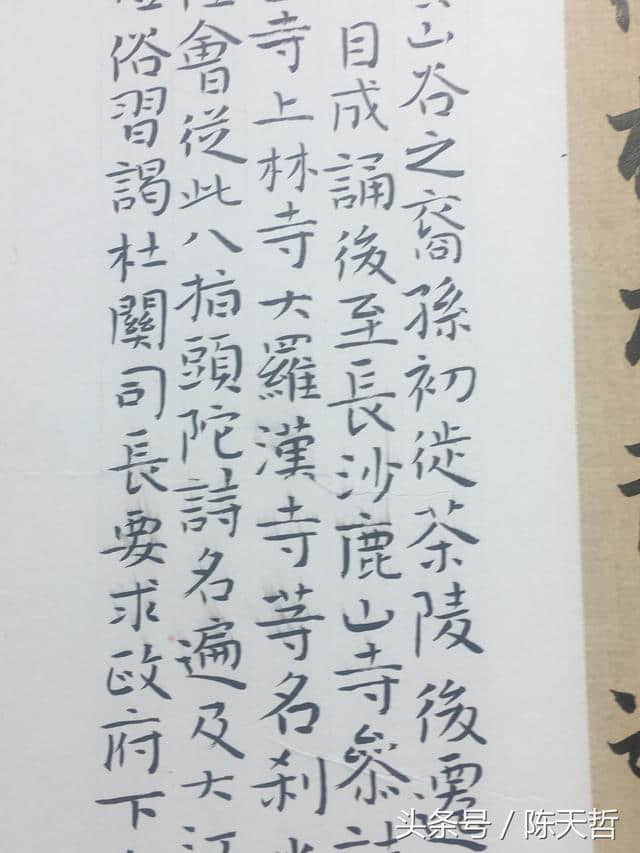 山谷之裔孫初從茶陵後遷
目成誦後至長沙鹿山寺參
寺上林寺大羅漢寺等名剎
會從此八指頭陀詩名遍及大江
俗習謁杜關司長要求政府下
头条号 / 陈天哲